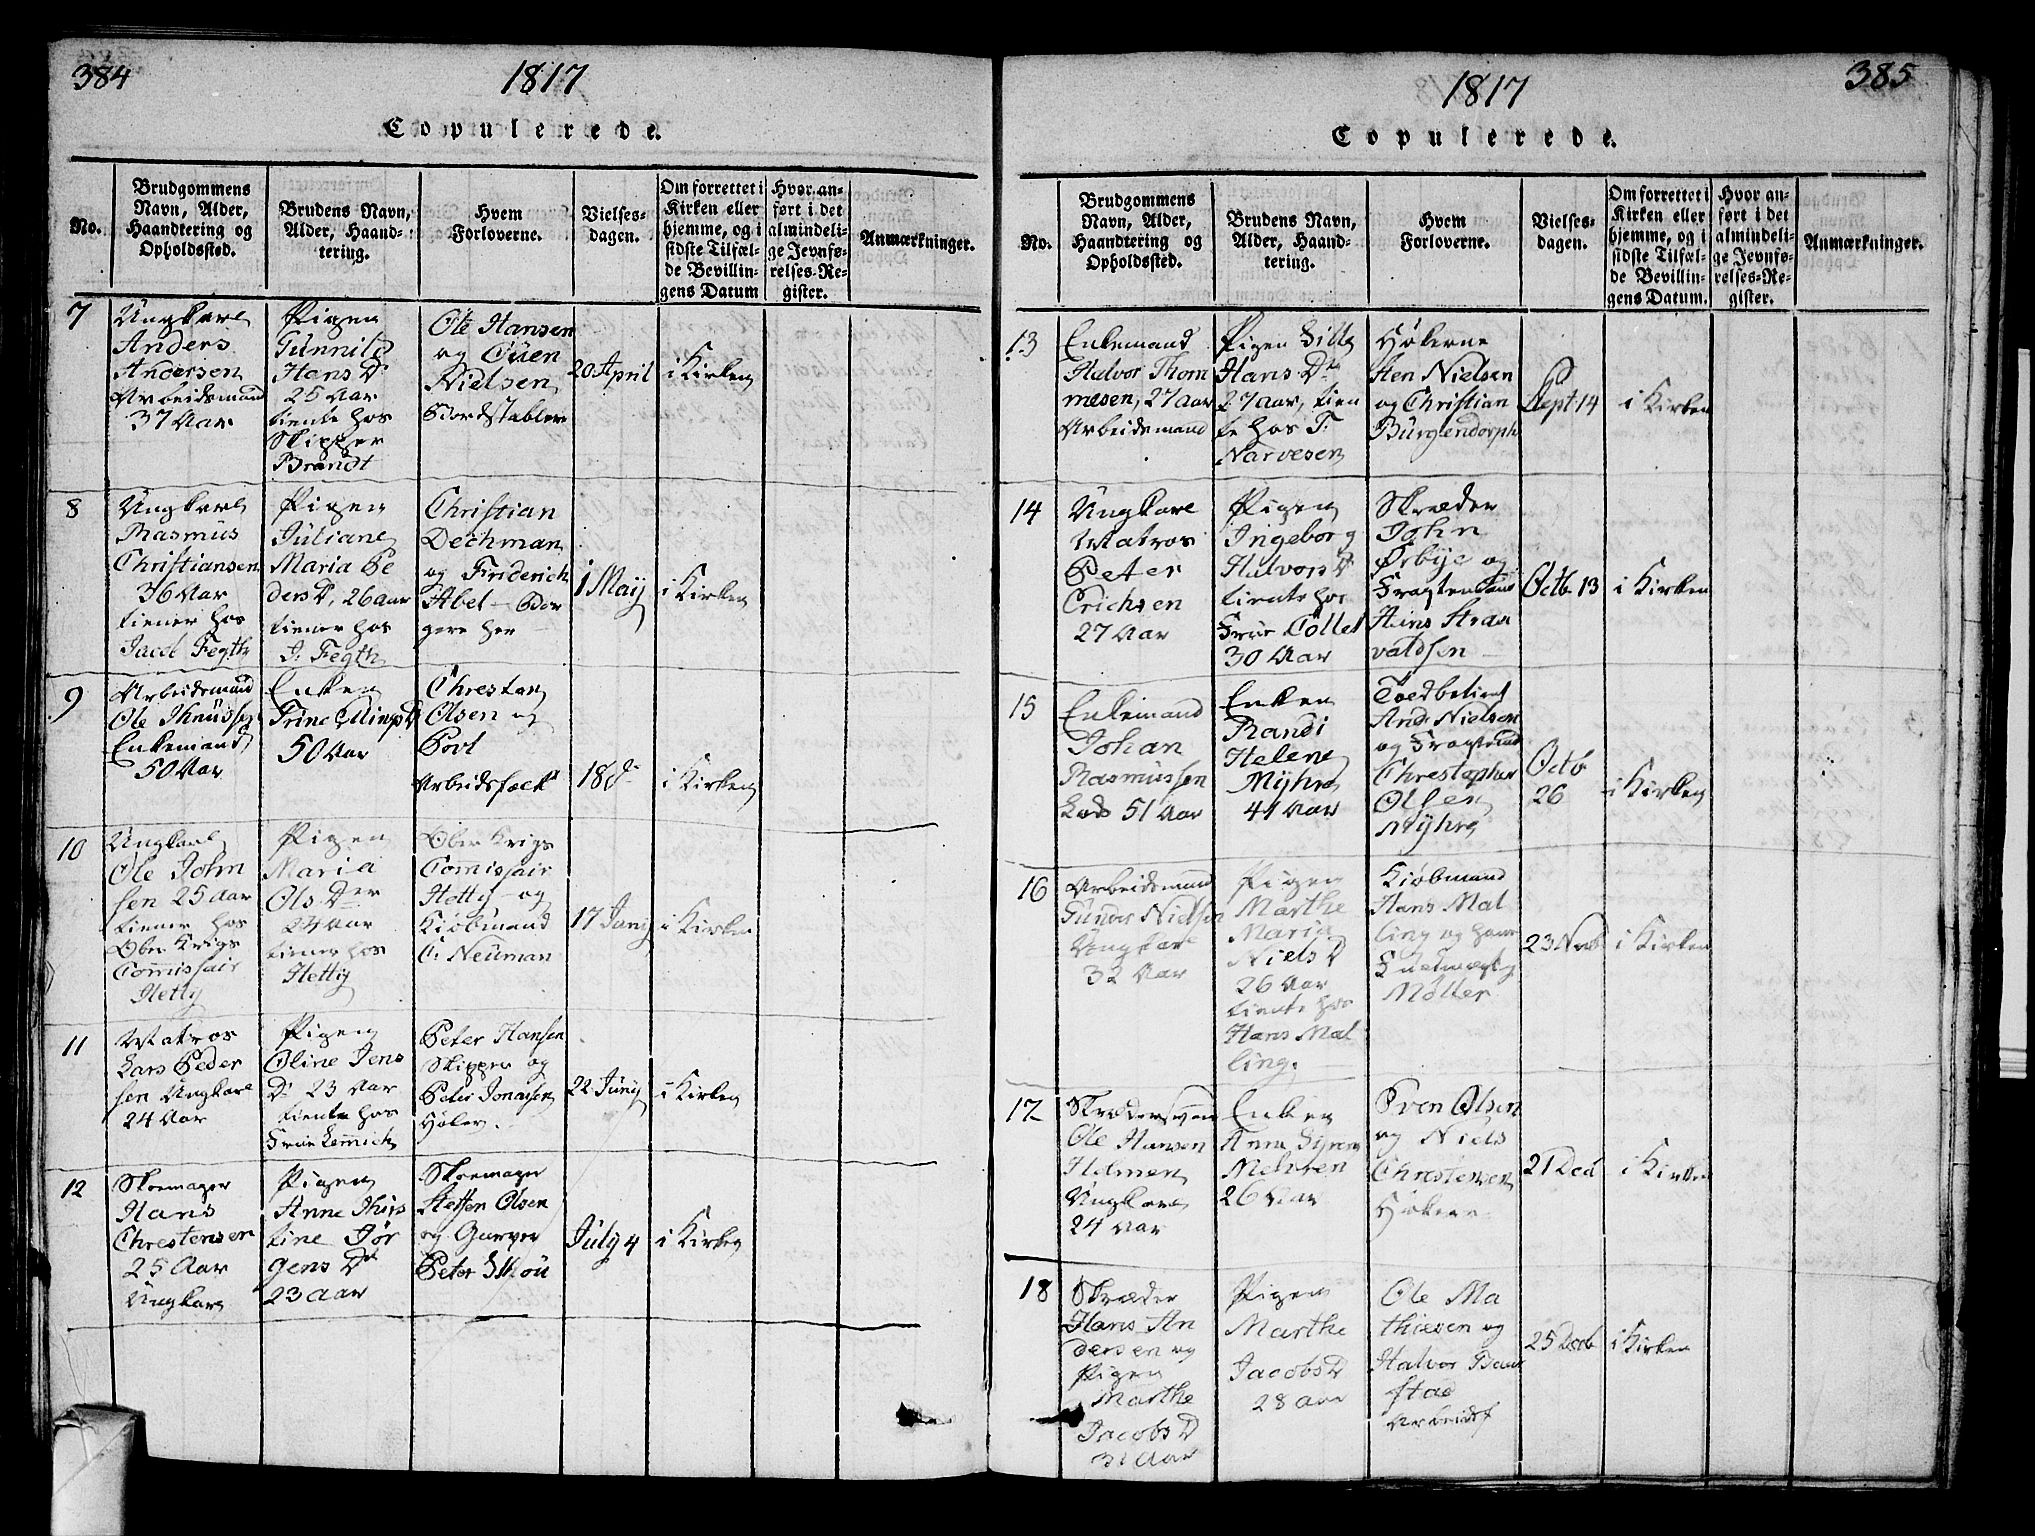 384
1817
Copulerede.
No.
Brudgommens
Navn, Alder,
Haandtering og
Opholdssted.
Brudens Navn,
Alder, Haand-
tering.
Hvem
Forloverne.
Vielses-
dagen.
Om forrettet i
Kirken eller
hjemme, og i
sidste Tilfæl-
de Bevillin-
gens Datum
Hvor an-
ført i det
almindeli-
ge Jevnfø-
relses-Re-
gister.
Anmærkninger.
7
Ungkarl
Anders
Andersen
Arbeidsmand
37 Aar
Pigen
Gunnild
Hans D
25 Aar
tiente hos
Skipper
Brandt
Ole Hansen
og Ouen
Nielsen
Bordstabler
20 April
i Kirken
8
Ungkarl
Rasmus
Christiansen
36 Aar
tiener hos
Jacob Fegth
Pigen
Juliane
Maria Pe
ders D, 26 aar
tiener hos
J: Fegth
Christian
Dechman
og Friderich
Abel – Bor
gere her
1 Maij
i Kirken
9
Arbeidsmand
Ole Knudsen
Enkemand
50 Aar
Enken
Trine
50 Aar
Christen
Olsen og
Povl
Arbeidsfolk
18 d
i Kirken
10
Ungkarl
Ole John
sen 25 Aar
tiener hos
Ober Krigs
Comissair
Hetty
Pigen
Maria
Ols Dter
24 Aar
tiener hos
Hettij
Ober Krigs
Comissair
Hetty og
Kiøbmand
C: Neuman
17 Junij
i Kirken
11
Matros
Lars Peder
sen Ungkarl
24 Aar
Pigen
Oline Jens
D: 23 Aar
tiente hos
Frue Lemmich
Peter Hansen
Skipper og
Peter Jonassen
Høker.
22 Junij
i Kirken
12
Skomager
Hans
Christensen
25 Aar
Ungkarl
Pigen
Anne Kirs
tine Jør
gens D
23 aar
Skomager
Steffen Olsen
og Garver
Peter Skou
July 4
i Kirken
1817
385
Copulerede.
No.
Brudgommens
Navn, Alder,
Haandtering og
Opholdssted.
Brudens Navn,
Alder, Haand-
tering.
Hvem
Forloverne.
Vielses-
dagen.
Om forrettet i
Kirken eller
hjemme, og i
sidste Tilfæl-
de Bevillin-
gens Datum.
Hvor an-
ført i det
almindeli-
ge Jevnfø-
relses-Re-
gister.
Anmærkninger.
13
Enkemand
Halvor Thom
mesen, 27 aar
Arbeidsmand
Pigen Sille
Hans D
27 aar, tien
te hos T.
Narvesen
Høkerne
Sten Nielsen
og Christian
Bürglendorph
Sept 14
i Kirken
14
Ungkarl
Matros
Peter
Erichsen
27 Aar
Pigen
Ingeborg
Halvors D
tiente hos
Frue Collet
30 Aar
Skræder
John
Ørbye og
Hans Stran
valdsen
Octb 13
i Kirken
15
Enkemand
Johan
Rasmussen
Lods 51 Aar
Enken
Randi
Helene
Myhre
41 Aar
Toedbetient
And: Nielsen
og Fragtmand
Christopher
Olsen
Myhre
Octb
26
i Kirken
16
Arbeidsmand
Gunder Nielsen
Ungkarl
32 Aar
Pigen
Marthe
Maria
Niels D
26 Aar
tiente hos
Hans Mal
ling.
Kiøbmand
Hans Mal
ling og hans
Fuldmægtig
Møller
23 Novb
i Kirken
17
Skrædersvend
Ole Hansen
Holmen
Ungkarl
24 Aar
Enken
Anne
26 Aar
Sven Olsen
og Niels
Christensen
Høkere
21 Dec
i Kirken
18
Skræder
Hans An
dersen og
Pigen
Marthe
Jacobs D
31 Aar
Pigen
Marthe
Jacobs D
28 aar
Ole Ma
thiesen og
Halvor
stad
Arbeidsf
25 Decb
i Kirken